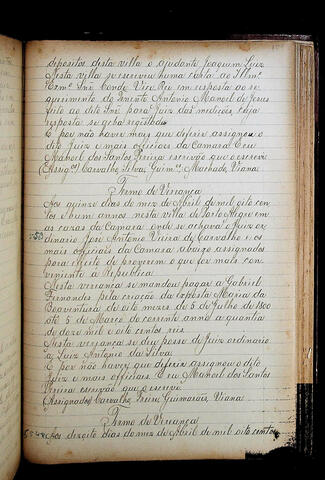 depositos desta villa o ajudante Joaquim Luiz
Nesta villa se escreveu huma carta ao Illmo
Exmo Snr Conde Vice Rey em resposta ao re
querimento do Tenente Antonio Manoel de Jesus
feito ao dito Snr para Juiz das medições, cuja
resposta se acha registada
E por não haver mais que deferir assignou o
dito Juiz e mais officiaes da Camara E eu
Manoel dos Santos Pereira escrivão que o escrevi
(Assigdos) Carvalho, Silva, Guimes, Machado, Viana.
Termo de Vereança
Aos quinze dias do mez de Abril de mil oito cen
tos e hum annos nesta villa de Porto Alegre em
as cazas da Camara onde se achava o Juiz or
dinario José Antonio Vieira de Carvalho e os
mais officiaes da Camara abaixo assignados
para effeito de proverem o que for mais con
veniente á Republica
Nesta vereança se mandou pagar a Gabriel
Fernandes pela criação da exposta Maria da
Boaventura de oito mezes de 5 de Julho de 1800
ate 5 de Março do corrente anno a quantia
de doze mil e oito centos reis
Nesta vereança se deu posse de Juiz ordinario
a Luiz Antonio da Silva
E por não haver que deferir assignou o dito
Juiz e mais officiaes E eu Manoel dos Santos
Pereira escrivão que o escrevi
(Assignados) Carvalho, Freire, Guimarães, Viana.
Termo de Vereança
Aos dezoito dias do mez de Abril de mil oito centos